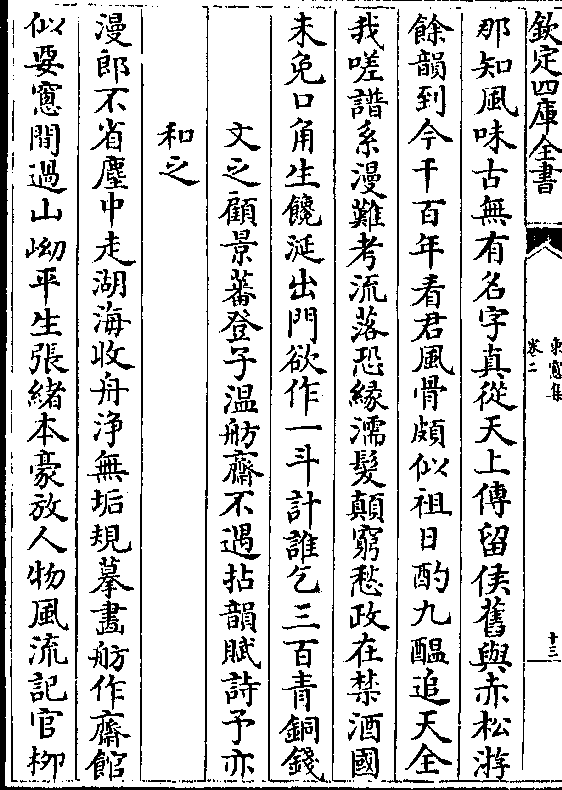 欽定四庫全書
東窗集
卷二
十三
那知風味古無有名字真從天上傳留侯舊與赤松游
餘韻到今千百年看君風骨頗似祖日酌九醖追天全
我嗟譜系漫難考流落恐緣濡髮顛窮愁政在禁酒國
未免口角生饞涎出門欲作一斗計誰乞三百青銅錢
文之顧景蕃登子温舫齋不遇拈韻賦詩予亦
和之
漫郎不省塵中走湖海收舟浄無垢規摹畫舫作齋館
似要窻間過山岰平生張緒本豪放人物風流記官栁